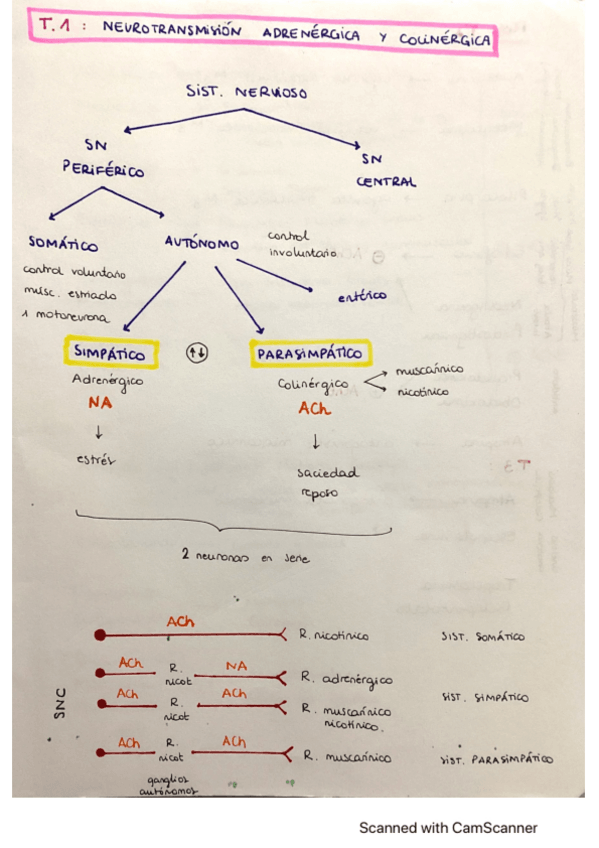 T.1 : NEUROTRANSMISIÓN ADRENÉRGICA Y COLINÉRGICA
SIST. NERVIOSO
SN
PERIFÉRICO
SN
CENTRAL
SOMÁTICO
control voluntario
musc. estriado
1 motoneurona
AUTÓNOMO
control
involuntario
entérico
SIMPÁTICO
PARASIMPÁTICO
Adrenérgico
NA
estrés
Colinérgico
muscarínico
nicotínico
ACh
saciedad
reposo
2 neuronas en serie
SNC
ACh
R. nicotínico
SIST. SOMÁTICO
ACh
R.
nicot
NA
R. adrenérgico
SIST. SIMPÁTICO
ACh
R.
nicot
ACh
R. muscarínico
nicotínico.
ACh
R.
nicot
ACh
R. muscarínico
SIST. PARASIMPÁTICO
ganglios
autónomos
Scanned with CamScanner